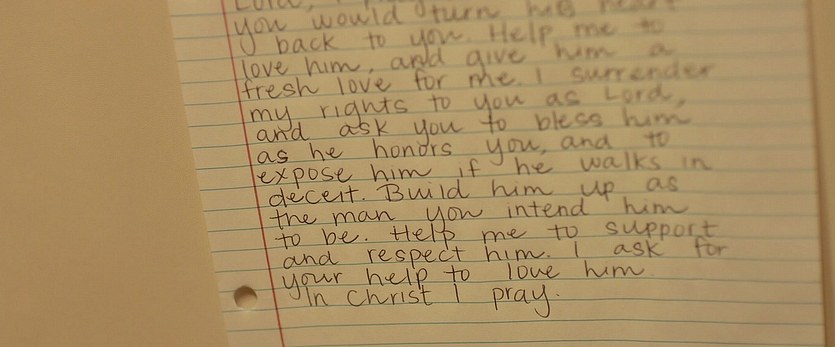 Lord, I
you would turn his heart
back to you. Help me to
love him, and give him a
fresh love for me. I surrender
my rights to you as Lord,
and ask you to bless him
as he honors you, and to
expose him if he walks in
deceit. Build him up as
the man you intend him
to be. Help me to support
and respect him. I ask for
your help to love him.
In Christ I pray.